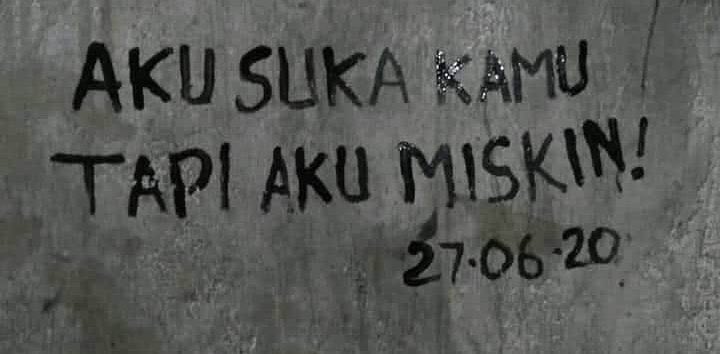 AKU SUKA KAMU
TAPI AKU MISKIN!
27.06.20